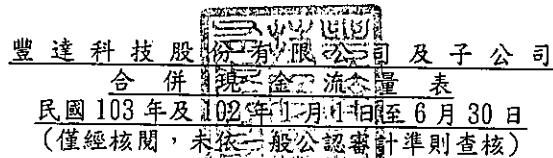 豐達科技股份有限公司及子公司
合併現金流量表
民國103年及102年1月1日至6月30日
(僅經核閱，未依一般公認審計準則查核)